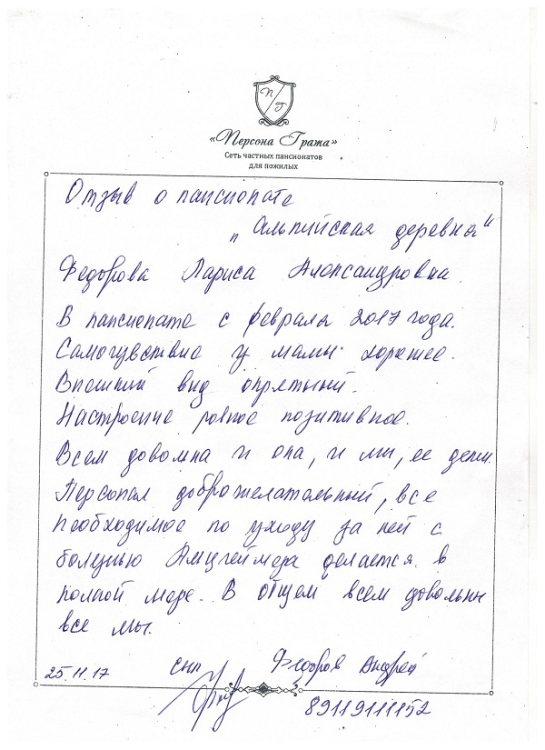 П/Г
«Персона Грата»
Сеть частных пансионатов
для пожилых
Отзыв о пансионате
„Альпийская деревня“
Федорова Лариса Александровна.
В пансионате с февраля 2017 года.
Самочувствие у мамы хорошее.
Внешний вид опрятный.
Настроение ровное позитивное.
Всем довольна и она, и мы, ее дети.
Персонал доброжелательный, все
необходимое по уходу за ней с
болезнью Альцгеймера делается в
полной мере. В общем всем довольны
все мы.
25.11.17 сын Федоров Андрей
89119111152